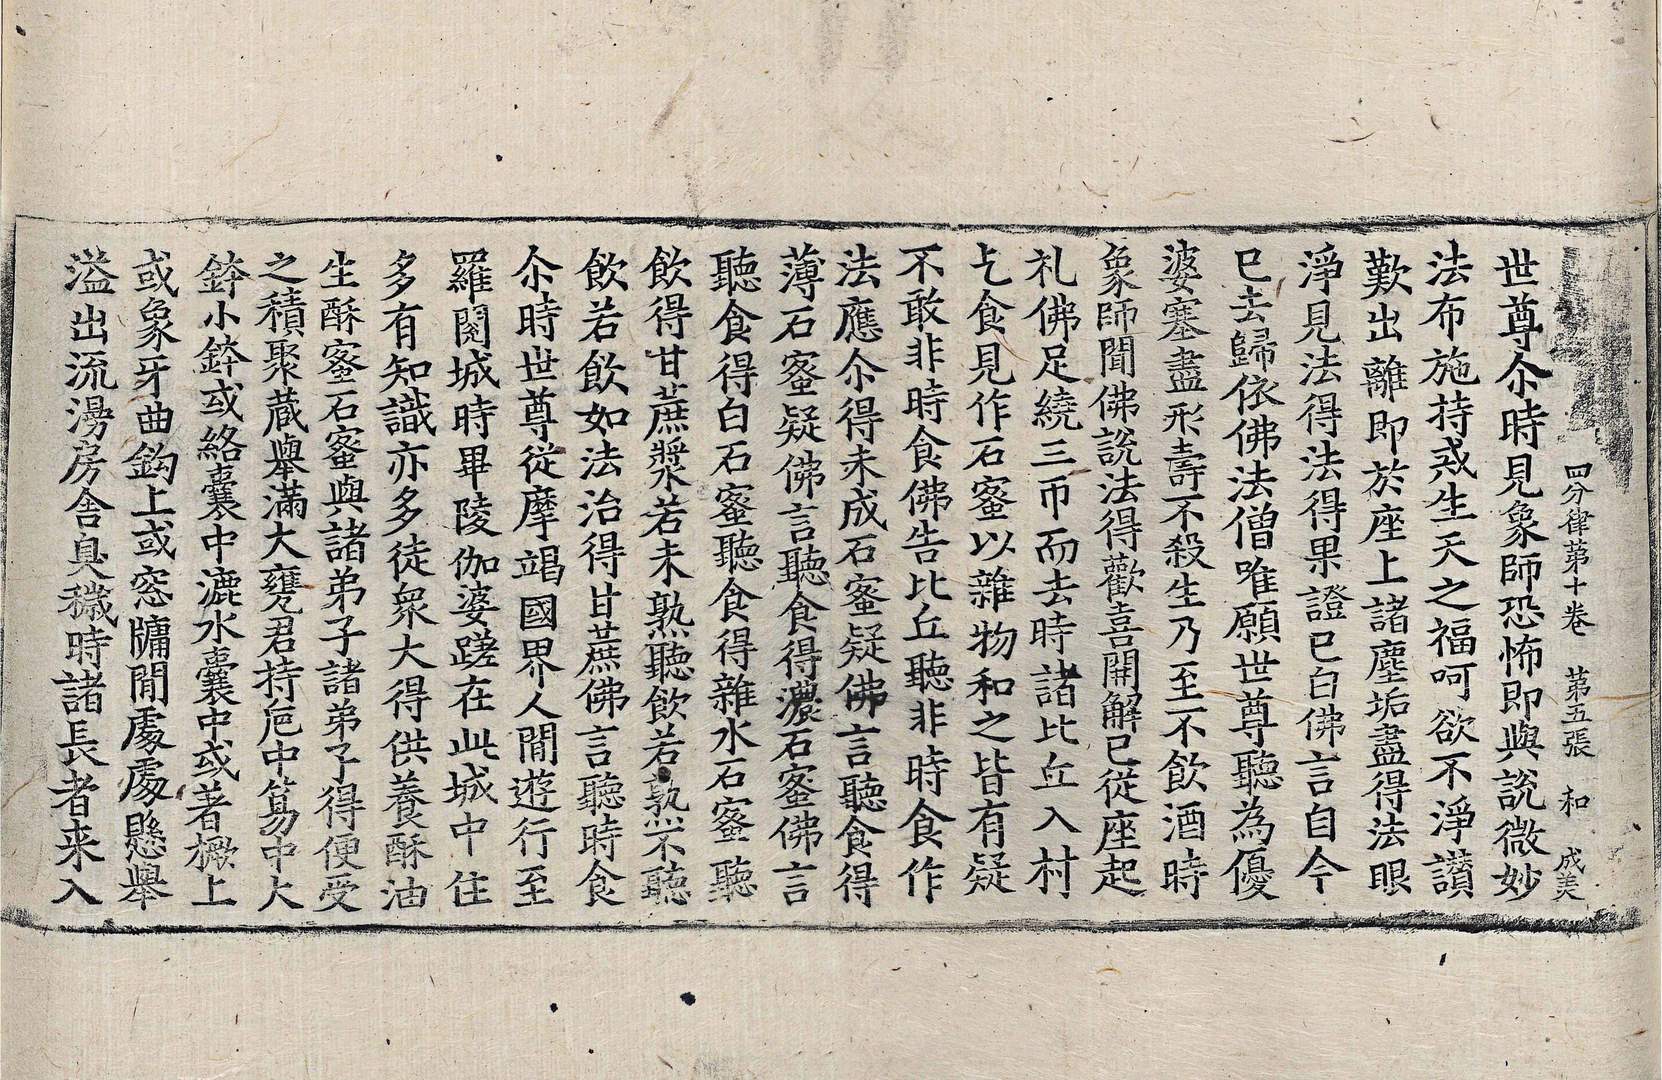 四分律第十卷 第五張 和 成美
世尊尒時見象師恐怖即與說微妙
法布施持戒生天之福呵欲不淨讃
歎出離即於座上諸塵垢盡得法眼
淨見法得法得果證已白佛言自今
已去歸依佛法僧唯願世尊聽為優
婆塞盡形壽不殺生乃至不飲酒時
象師聞佛說法得歡喜開解已從座起
礼佛足繞三帀而去時諸比丘入村
乞食見作石蜜以雜物和之皆有疑
不敢非時食佛告比丘聽非時食作
法應尒得未成石蜜疑佛言聽食得
薄石蜜疑佛言聽食得濃石蜜佛言
聽食得白石蜜聽食得雜水石蜜聽
飲得甘蔗漿若未熟聽飲若熟不聽
飲若飲如法治得甘蔗佛言聽時食
尒時世尊從摩竭國界人間遊行至
羅閱城時畢陵伽婆蹉在此城中住
多有知識亦多徒衆大得供養酥油
生酥蜜石蜜與諸弟子諸弟子得便受
之積聚藏舉滿大甕君持巵中篣中大
鉢小鉢或絡囊中漉水囊中或著橛上
或象牙曲鈎上或窓牖間處處懸舉
溢出流漫房舍臭穢時諸長者来入